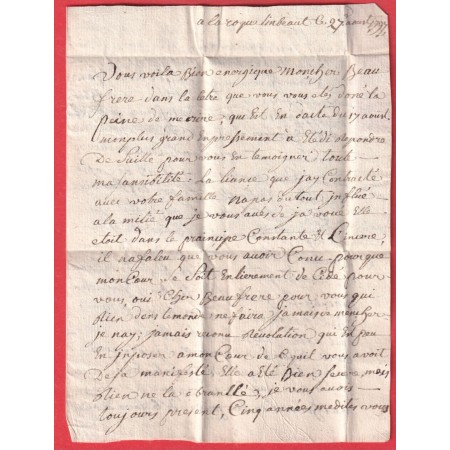 a la roque timbaut Ce 27 aoust 1791
Vous voila Bien energique Moncher Beau
frere dans la letre que vous vous etes doné la
peine de mecrire, qui Est En date du 17 aoust
monplus grand Empressement a Eté di repondre
De Suitte pour vous En temoigner toute
ma sansibilité. la liance que jay Contracté
avec votre famille Na pas du tout influé
a la mitié que je vous avois ja voué Elle
etoit dans le prainsipe Constante Et Sincime,
il na faleu que vous avoir Conu pourque
mon Cœur Se Soit Entierement de Cidé pour
vous, oui Cher Beau frere pour vous qui
Rien dans lemonde ne faira jamais
je nay; jamais reconu Revolution qui Est peu
En inposer amon Cœur de qu'il vous avoit
De ja manifesté Elle a Eté Bien mais
Rien ne la Ebranllé, je vous avois
toujours present, Cinq années medites vous